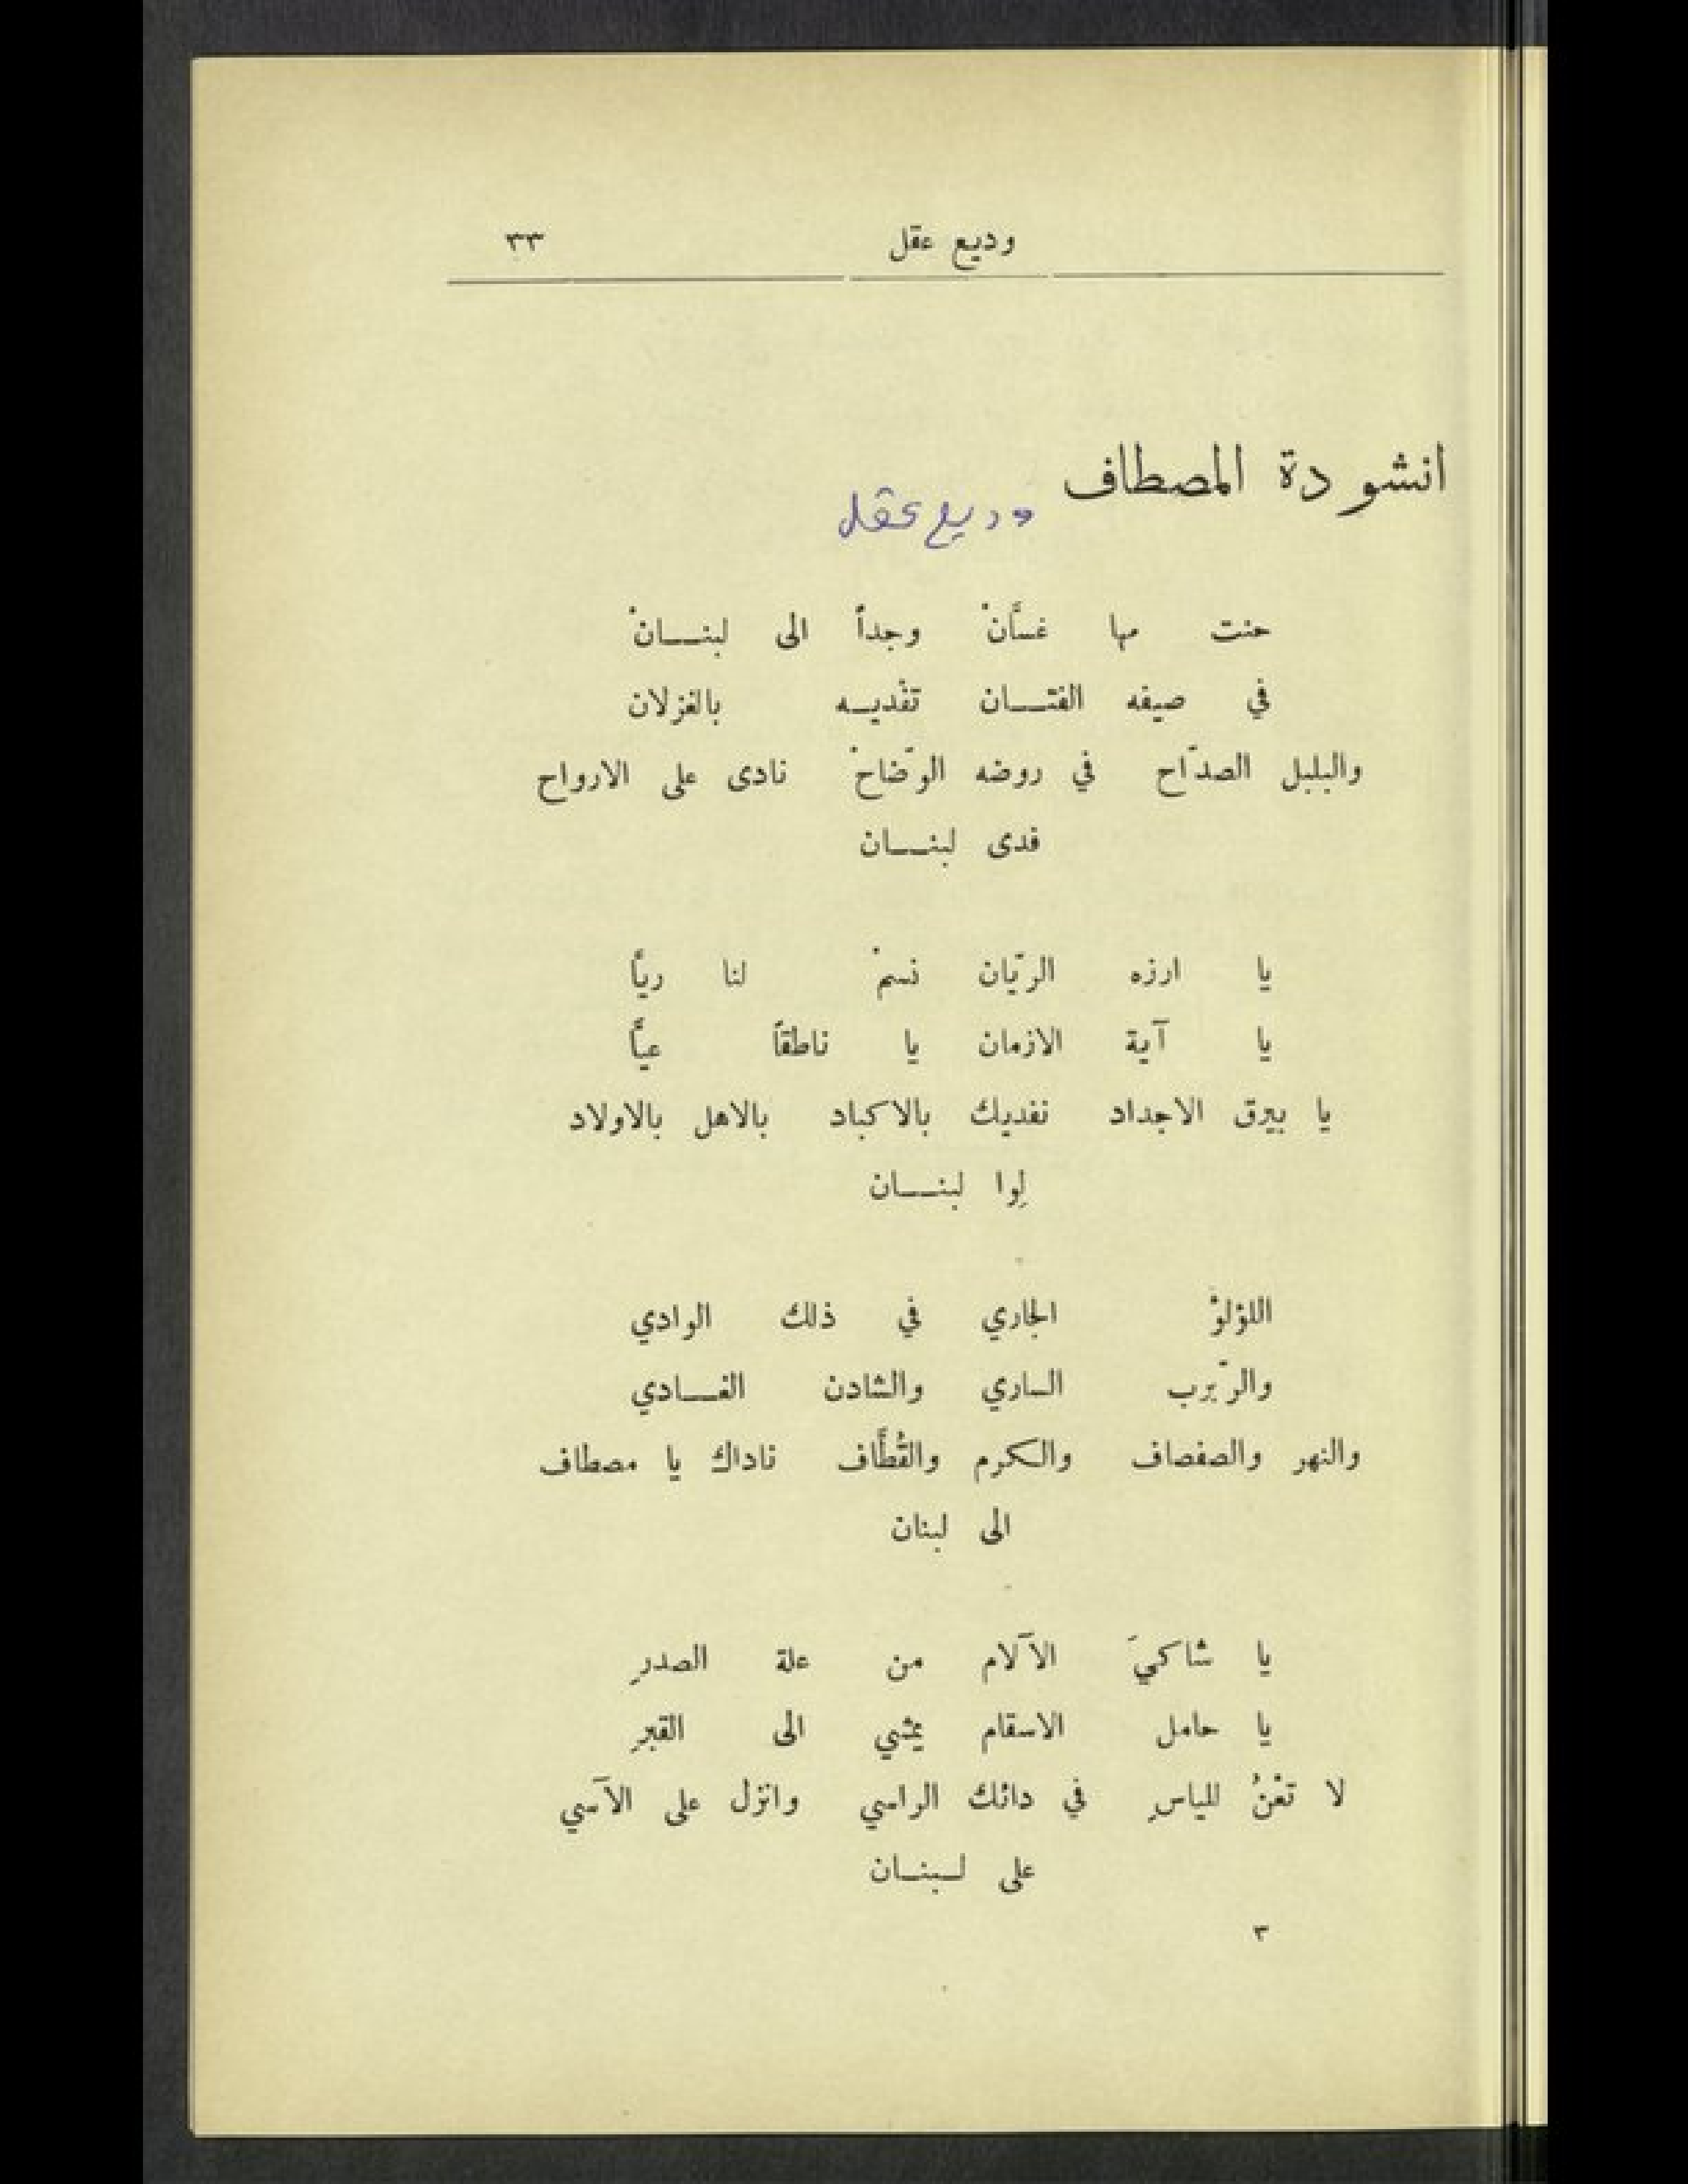 وديع عقل ٣٣
انشودة المصطاف
وديع عقل
حنت مها غسَّانْ وجداً الى لبنـــانْ
في صيفه الفتـــان تفْديـــه بالغزلان
والبلبل الصدّاح في روضه الوّضاحْ نادى على الارواح
فدى لبنـــان
يا ارزه الريّان نسمْ لنا ريَّا
يا آية الازمان يا ناطقاً عيَّا
يا بيرق الاجداد نفديك بالاكباد بالاهل بالاولاد
لِوا لبنـــان
اللؤلؤْ الجاري في ذلك الوادي
والرّبرب الساري والشادن الغـــادي
والنهر والصفصاف والكرم والقُطَّاف ناداك يا مصطاف
الى لبنان
يا شاكيَ الآلام من علة الصدرِ
يا حامل الاسقام يمشي الى القبرِ
لا تعْنُ للياسِ في دائك الراسي وانزل على الآسي
على لـبنـان
٣